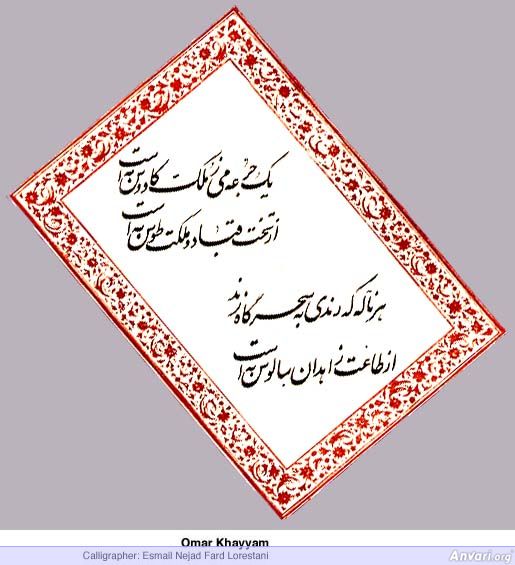 یک جرعه می ز ملک کاووس به است
از تخت قباد و ملکت طوس به است
هر ناله که رندی به سحرگاه زند
از طاعت زاهدان سالوس به است
Omar Khayyam
Calligrapher: Esmail Nejad Fard Lorestani
Anvari.org